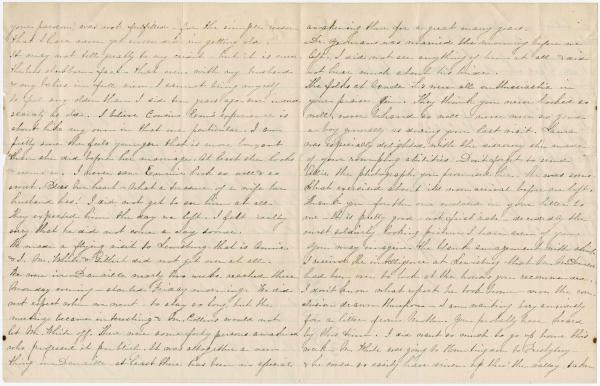 your person, was not fulfilled for the simple reason
that I have never yet succeeded in getting old.
It may not tell greatly to my credit but it is none
the less stubborn fact that even with my husband
& my babies in full view I cannot bring myself
to feel any older than I did ten years ago, nor
scarcely so old. I believe Cousin experience is
about like my own in that one particular. I am
fully sure she feels younger that is more buoyant
than she did before her marriage. At least she looks
I never saw look so well & so
sweet. Bless her heart what a treasure of a wife her
husband has! I did not get to see him at all.
They expected him the day we left. I felt really
sorry that he did not come a day sooner.
We made a flying visit to Lewisburg that is Annie
& I. Mr. White & did not get over at all.
We were in Danville nearly two weeks, reached there
Monday evening started Friday morning. We did
not expect when we went to stay so long, but the
meetings became interesting & Mr. Collins would not
let Mr. White off. There were some forty persons awakened
who professed it publicly. It was altogether a new
thing in Danville at least there has been no especial
awakening there for a great many years.
Dr. Yeomans was married the morning before we
left. I did not see anything of him at all & did
not hear much about his bride.
The folks at were all enthusiastic in
your praise They think you never looked so
well, never behaved so well never were as good
a boy generally as during your last visit. Laura
was especially delighted with the discovery she made
of your abilities. Don't forget to send
the photograph you promised her. She was some-
what exercised about its non arrival before we left.
Thank you for the one enclosed in your letter to
me. It is pretty good not first rate decidedly the
most elderly looking picture I have seen of you.
You may imagine the blank amazement with which
I received the intelligence at Lewisburg that
had been over to look at the house you recommended.
I don't know what report he took home nor the con-
clusion drawn therefrom I am waiting very anxiously
for a letter from You probably have heard
by this time. I did want so much to go up home this
week. Mr. White was going to Huntingdon to Presbytery
& he could so easily have driven up thro' the valley taken